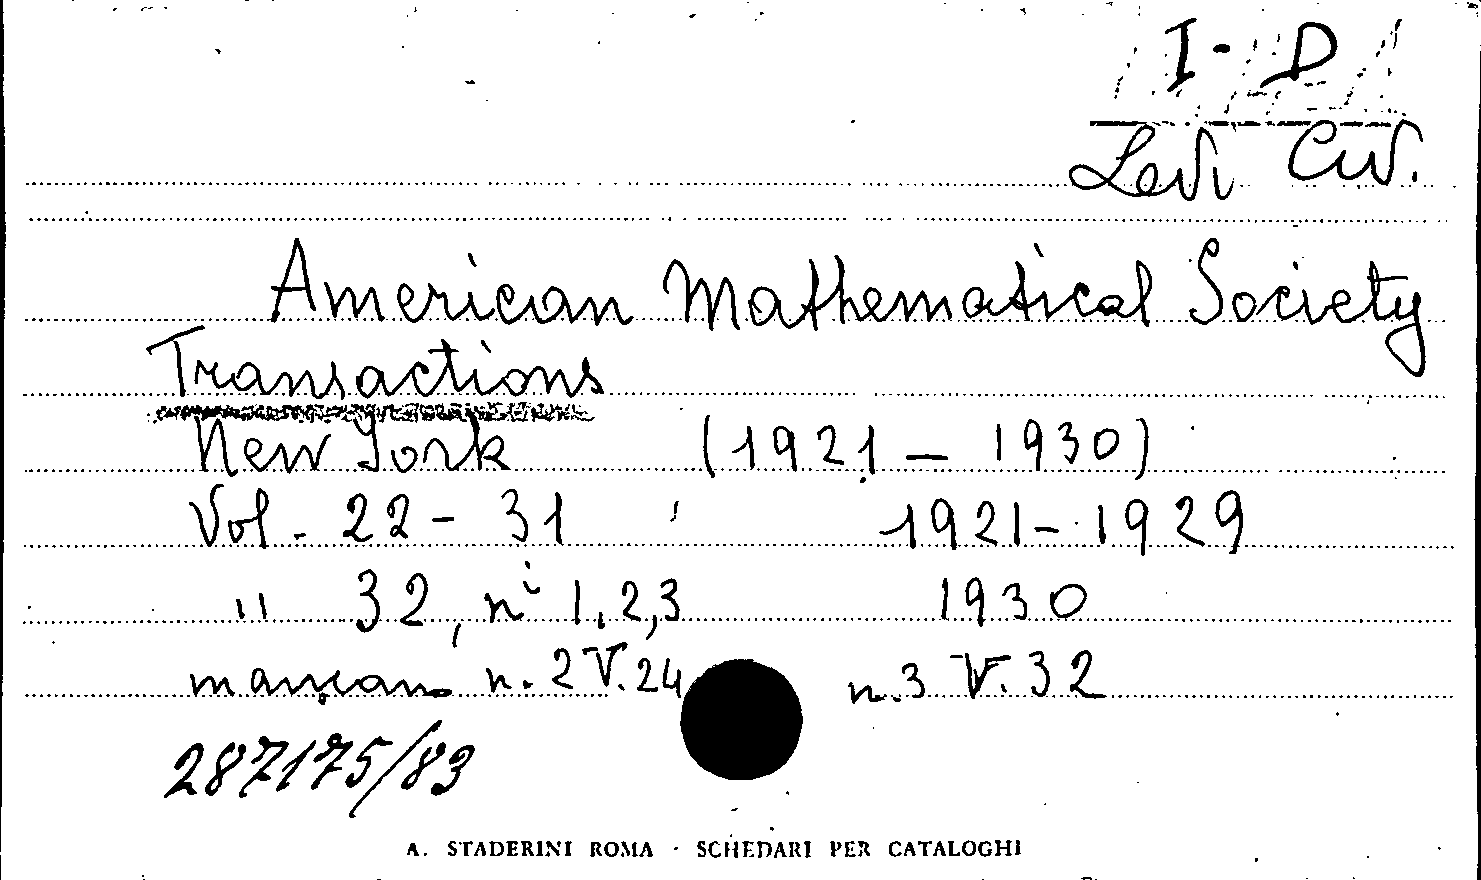 I - D
Levi Civ.
American Mathematical Society
Transactions
New York (1921 - 1930)
Vol. 22 - 31 1921 - 1929
" 32, ni 1,2,3 1930
mancano n. 2 V. 24 n. 3 V. 32
287175/83
A. STADERINI ROMA · SCHEDARI PER CATALOGHI